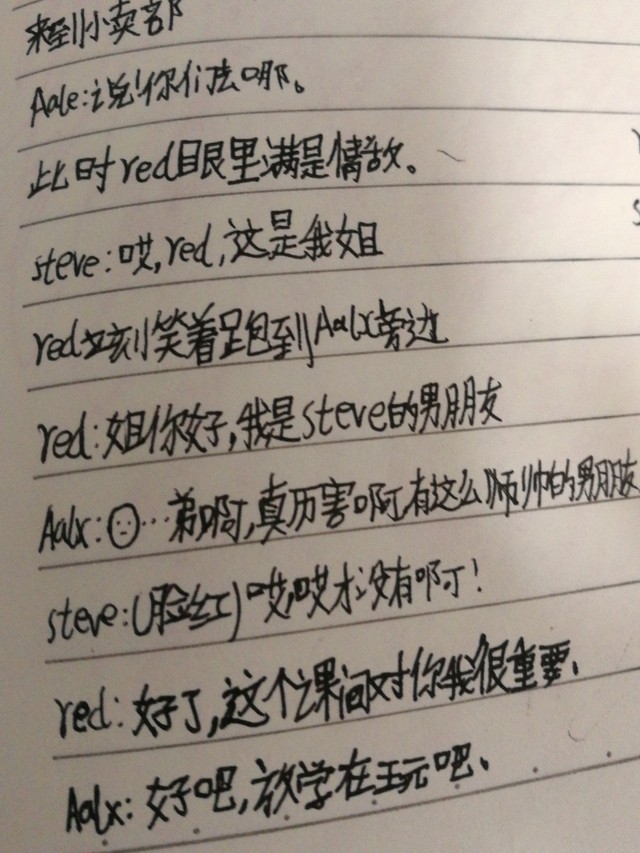 来到小卖部
Aale:说!你们去哪。
此时red眼里满是情敌。
steve:哎,red,这是我姐
red立刻笑着跑到Aalx旁边
red:姐你好,我是steve的男朋友
Aalx:☹…弟啊,真厉害啊,有这么帅的男朋友
steve:(脸红)哎,哎才没有啊!
red:好了,这个课间对你我很重要、
Aalx:好吧,放学在玩吧、